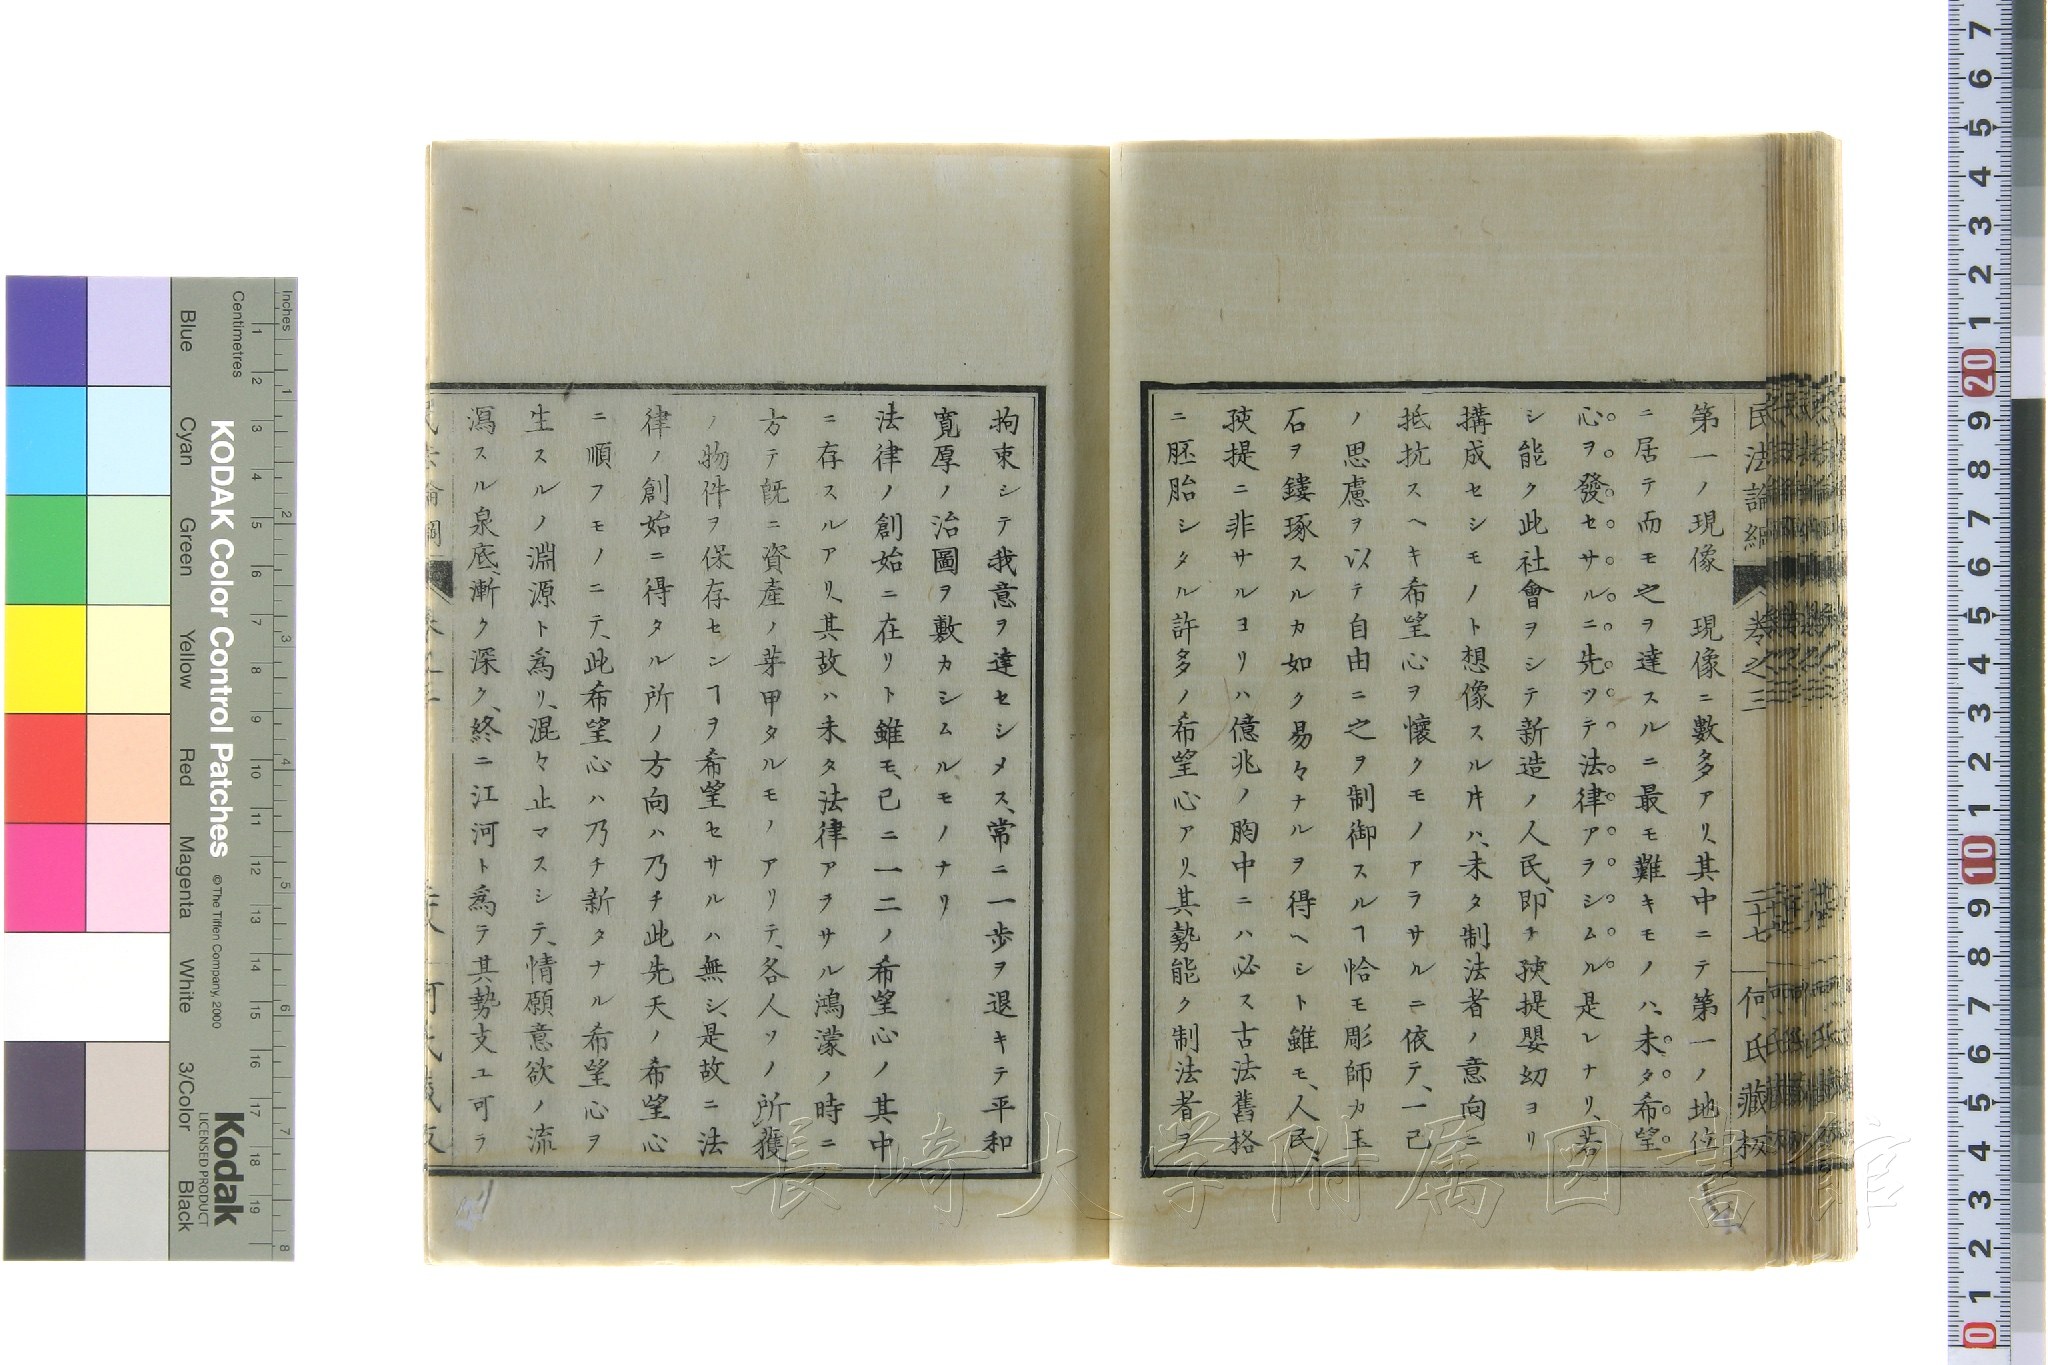 民法論綱 卷之三 二十七 何氏藏板
第一ノ現像　現像ニ數多アリ、其中ニテ第一ノ地位
ニ居テ而モ之ヲ達スルニ最モ難キモノハ、未タ希望
心ヲ發セサルニ先ツテ法律アラシムル是レナリ、若
シ能ク此社會ヲシテ新造ノ人民、即チ孩提嬰幼ヨリ
搆成セシモノト想像スル片ハ、未タ制法者ノ意向ニ
抵抗スヘキ希望心ヲ懷クモノアラサルニ依テ、一己
ノ思慮ヲ以テ自由ニ之ヲ制御スルヿ恰モ彫師カ玉
石ヲ鏤琢スルカ如ク易々ナルヲ得ヘシト雖モ、人民、
孩提ニ非サルヨリハ億兆ノ胸中ニハ必ス古法舊格
ニ胚胎シタル許多ノ希望心アリ、其勢能ク制法者ヲ
拘束シテ我意ヲ達セシメス、常ニ一歩ヲ退キテ平和
寛厚ノ治圖ヲ敷カシムルモノナリ
法律ノ創始ニ在リト雖モ、已ニ一二ノ希望心ノ其中
ニ存スルアリ、其故ハ未タ法律アヲサル鴻濛ノ時ニ
方テ既ニ資產ノ芽甲タルモノアリテ、各人ツノ所獲
ノ物件ヲ保存センヿヲ希望セサルハ無シ、是故ニ法
律ノ創始ニ得タル所ノ方向ハ乃チ此先天ノ希望心
ニ順フモノニテ、此希望心ハ乃チ新タナル希望心ヲ
生スルノ淵源ト爲リ、混々止マスシテ、情願意欲ノ流
瀉スル泉底、漸ク深ク、終ニ江河ト爲ラ其勢支ユ可ラ
長崎大学附属図書館
KODAK Color Control Patches
© The Tiffen Company, 2000
Kodak
LICENSED PRODUCT
Inches
Centimetres
Blue
Cyan
Green
Yellow
Red
Magenta
White
3/Color
Black